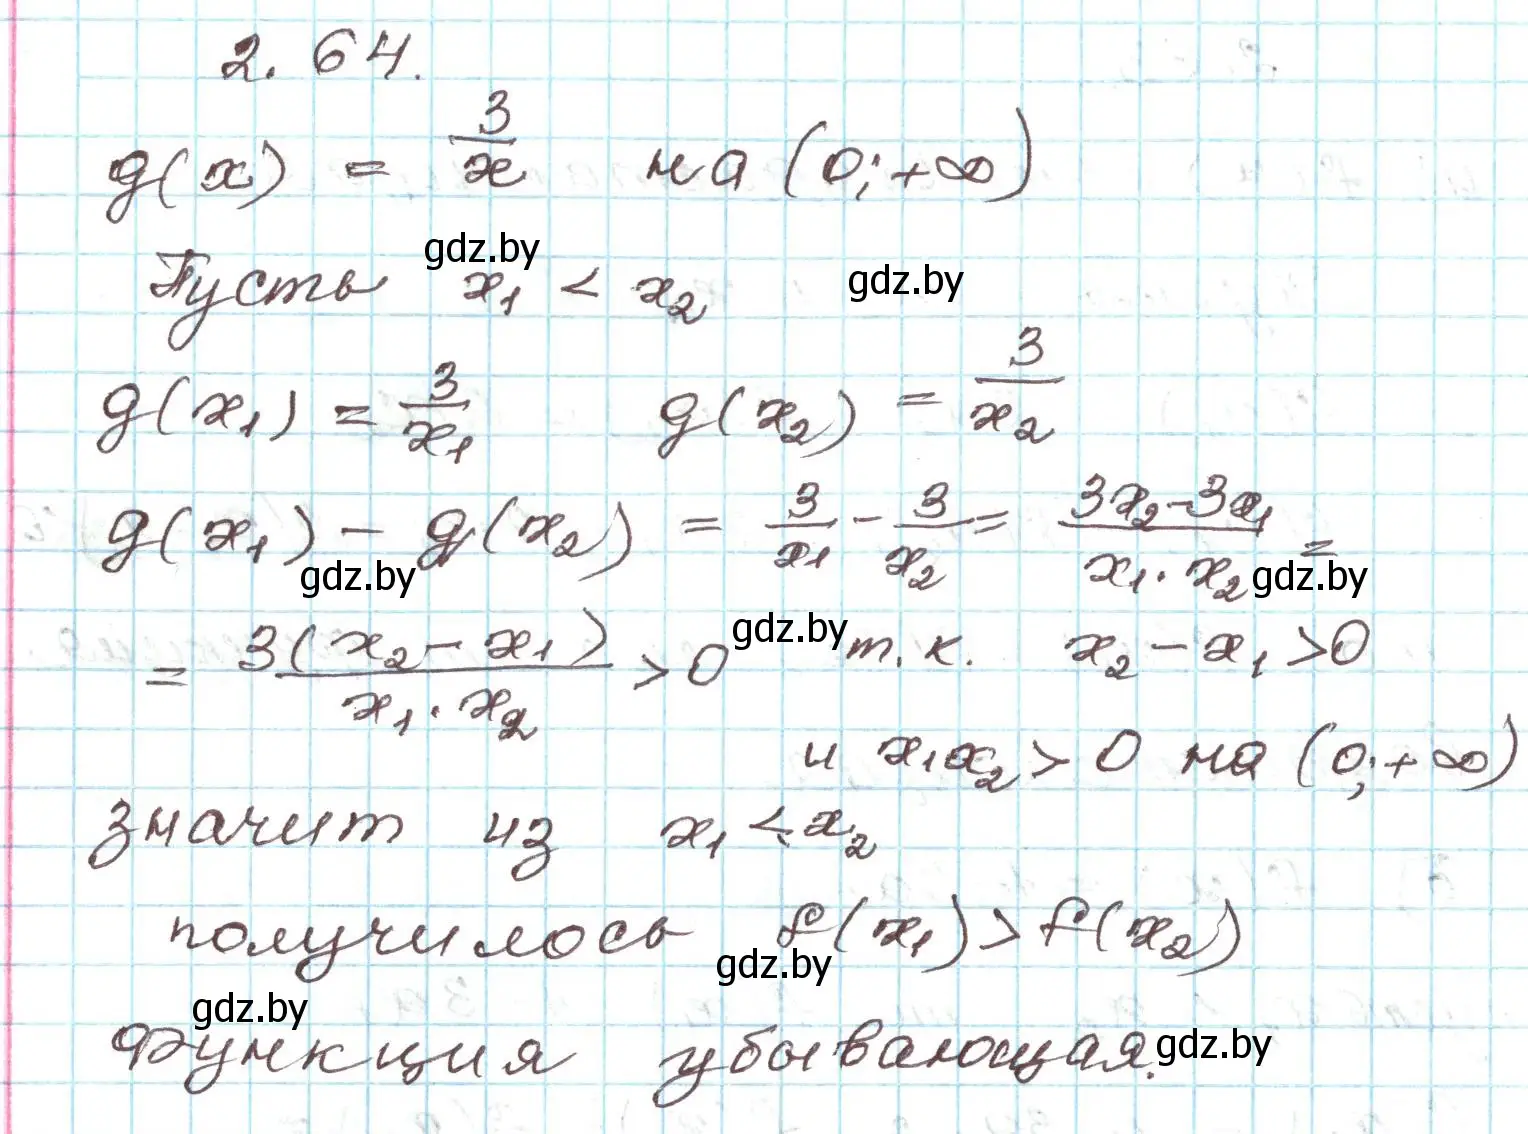 2. 64.
g(x) = 3/x на (0; +∞)
gdz.by
Пусть x₁ < x₂ gdz.by
g(x₁) = 3/x₁ g(x₂) = 3/x₂
g(x₁) - g(x₂) = 3/x₁ - 3/x₂ = (3x₂ - 3x₁)/(x₁ · x₂) =
gdz.by gdz.by
= 3(x₂ - x₁)/(x₁ · x₂) > 0 gdz.by т. к. x₂ - x₁ > 0
и x₁x₂ > 0 на (0; +∞)
значит из x₁ < x₂
получилось f(x₁) > f(x₂)
gdz.by
gdz.by
Функция убывающая. gdz.by